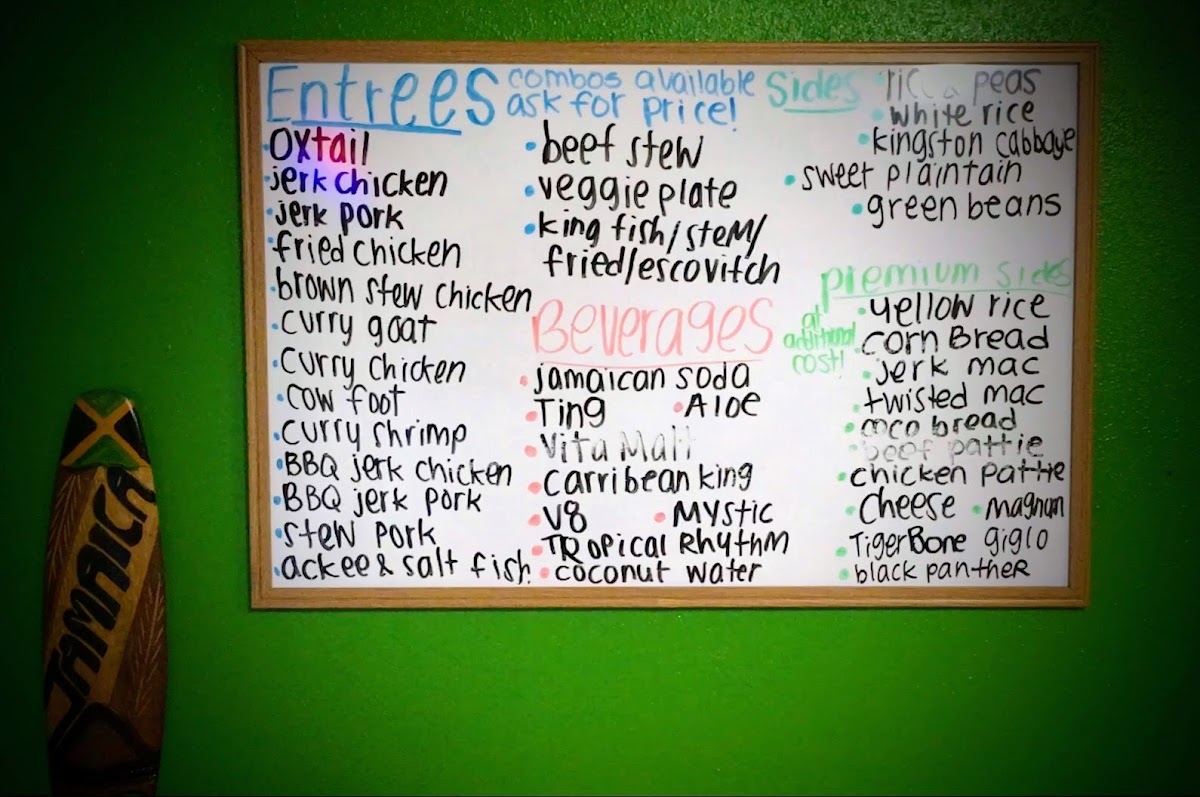 Entrees
combos available
ask for price!
oxtail
jerk chicken
jerk pork
fried chicken
brown stew chicken
curry goat
curry chicken
cow foot
curry shrimp
BBQ jerk chicken
BBQ jerk pork
stew pork
ackee & salt fish
beef stew
veggie plate
king fish/steM/
fried/escovitch
Beverages
jamaican soda
Ting Aloe
Vita Malt
carribean king
V8 Mystic
TRopical Rhythm
coconut water
Sides
ric & peas
white rice
kingston cabbage
sweet plaintain
green beans
premium sides
at
additional
cost!
yellow rice
corn Bread
jerk mac
twisted mac
coco bread
beef pattie
chicken pattie
cheese magnum
TigerBone giglo
black pantheR
JAMAICA